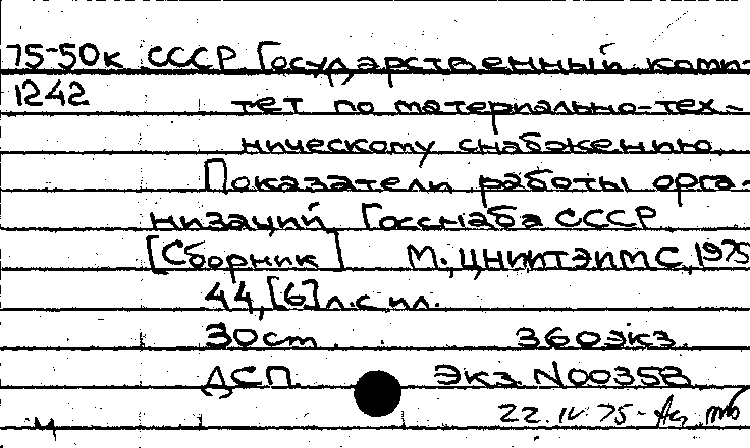 75-50к СССР Государственный коми-
1242 тет по материально-тех-
ническому снабжению.
Показатели работы орга-
низаций Госснаба СССР
[Сборник] М., ЦНИИТЭИМС, 1975
44, [6] л. с ил.
30 см 360 экз.
ДСП. Экз. N 00358
22.IV.75-